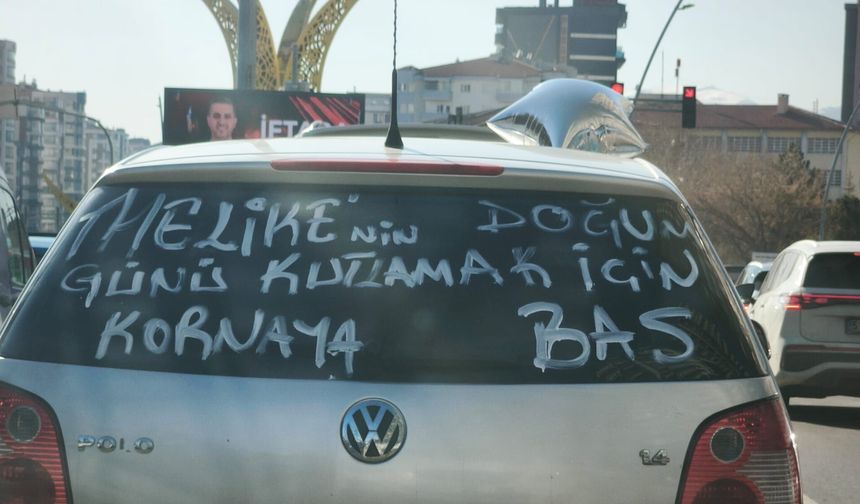 İFTA
MELİKE'NİN DOĞUM
GÜNÜ KUTLAMAK İÇİN
KORNAYA BAS
POLO
1.4